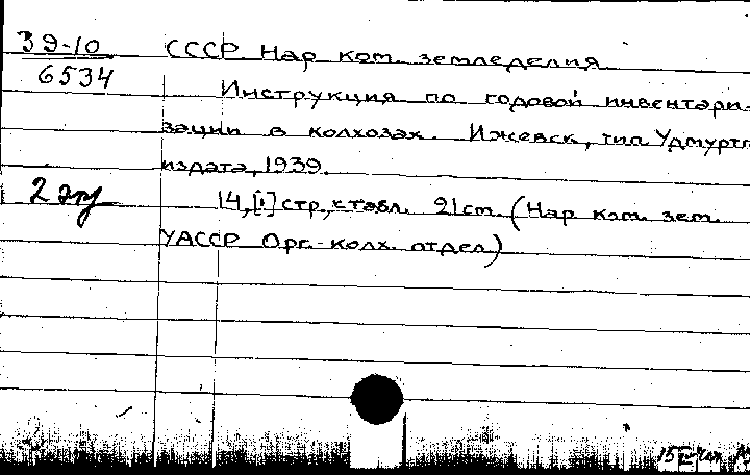 39-10 СССР Нар ком. земледелия
6534
Инструкция по годовой инвентари-
зации в колхозах. Ижевск, тип Удмуртг
издата, 1939.
2 экз
14,[1] стр., с табл. 21 ст. (Нар ком. зем.
УАССР Орг.-колх. отдел)